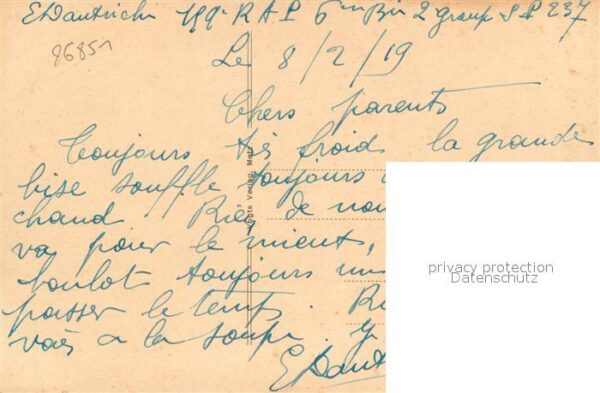 E Dautriche 189e R A L 6me Bie 2 group S.P. 237
86851
Le 8/2/19
Chers parents
Toujours très froid la grande
bise souffle toujours
chaud Rien de nou
va pour le mieux,
boulot toujours un
passer le temps. Ri
vais a la soupe. y
E Daut
Verlag, Metz
privacy protection
Datenschutz